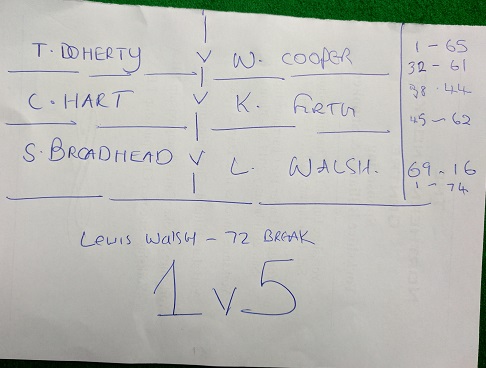 T. DOHERTY V W. COOPER 1 - 65
32 - 61
C. HART V K. FIRTH 38 - 44
45 - 62
S. BROADHEAD V L. WALSH. 69 - 16
1 - 74
Lewis Walsh - 72 BREAK
1 v 5